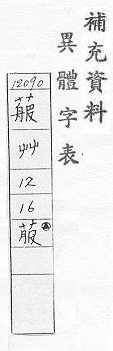 補充資料
異體字表
12090
艸
12
16